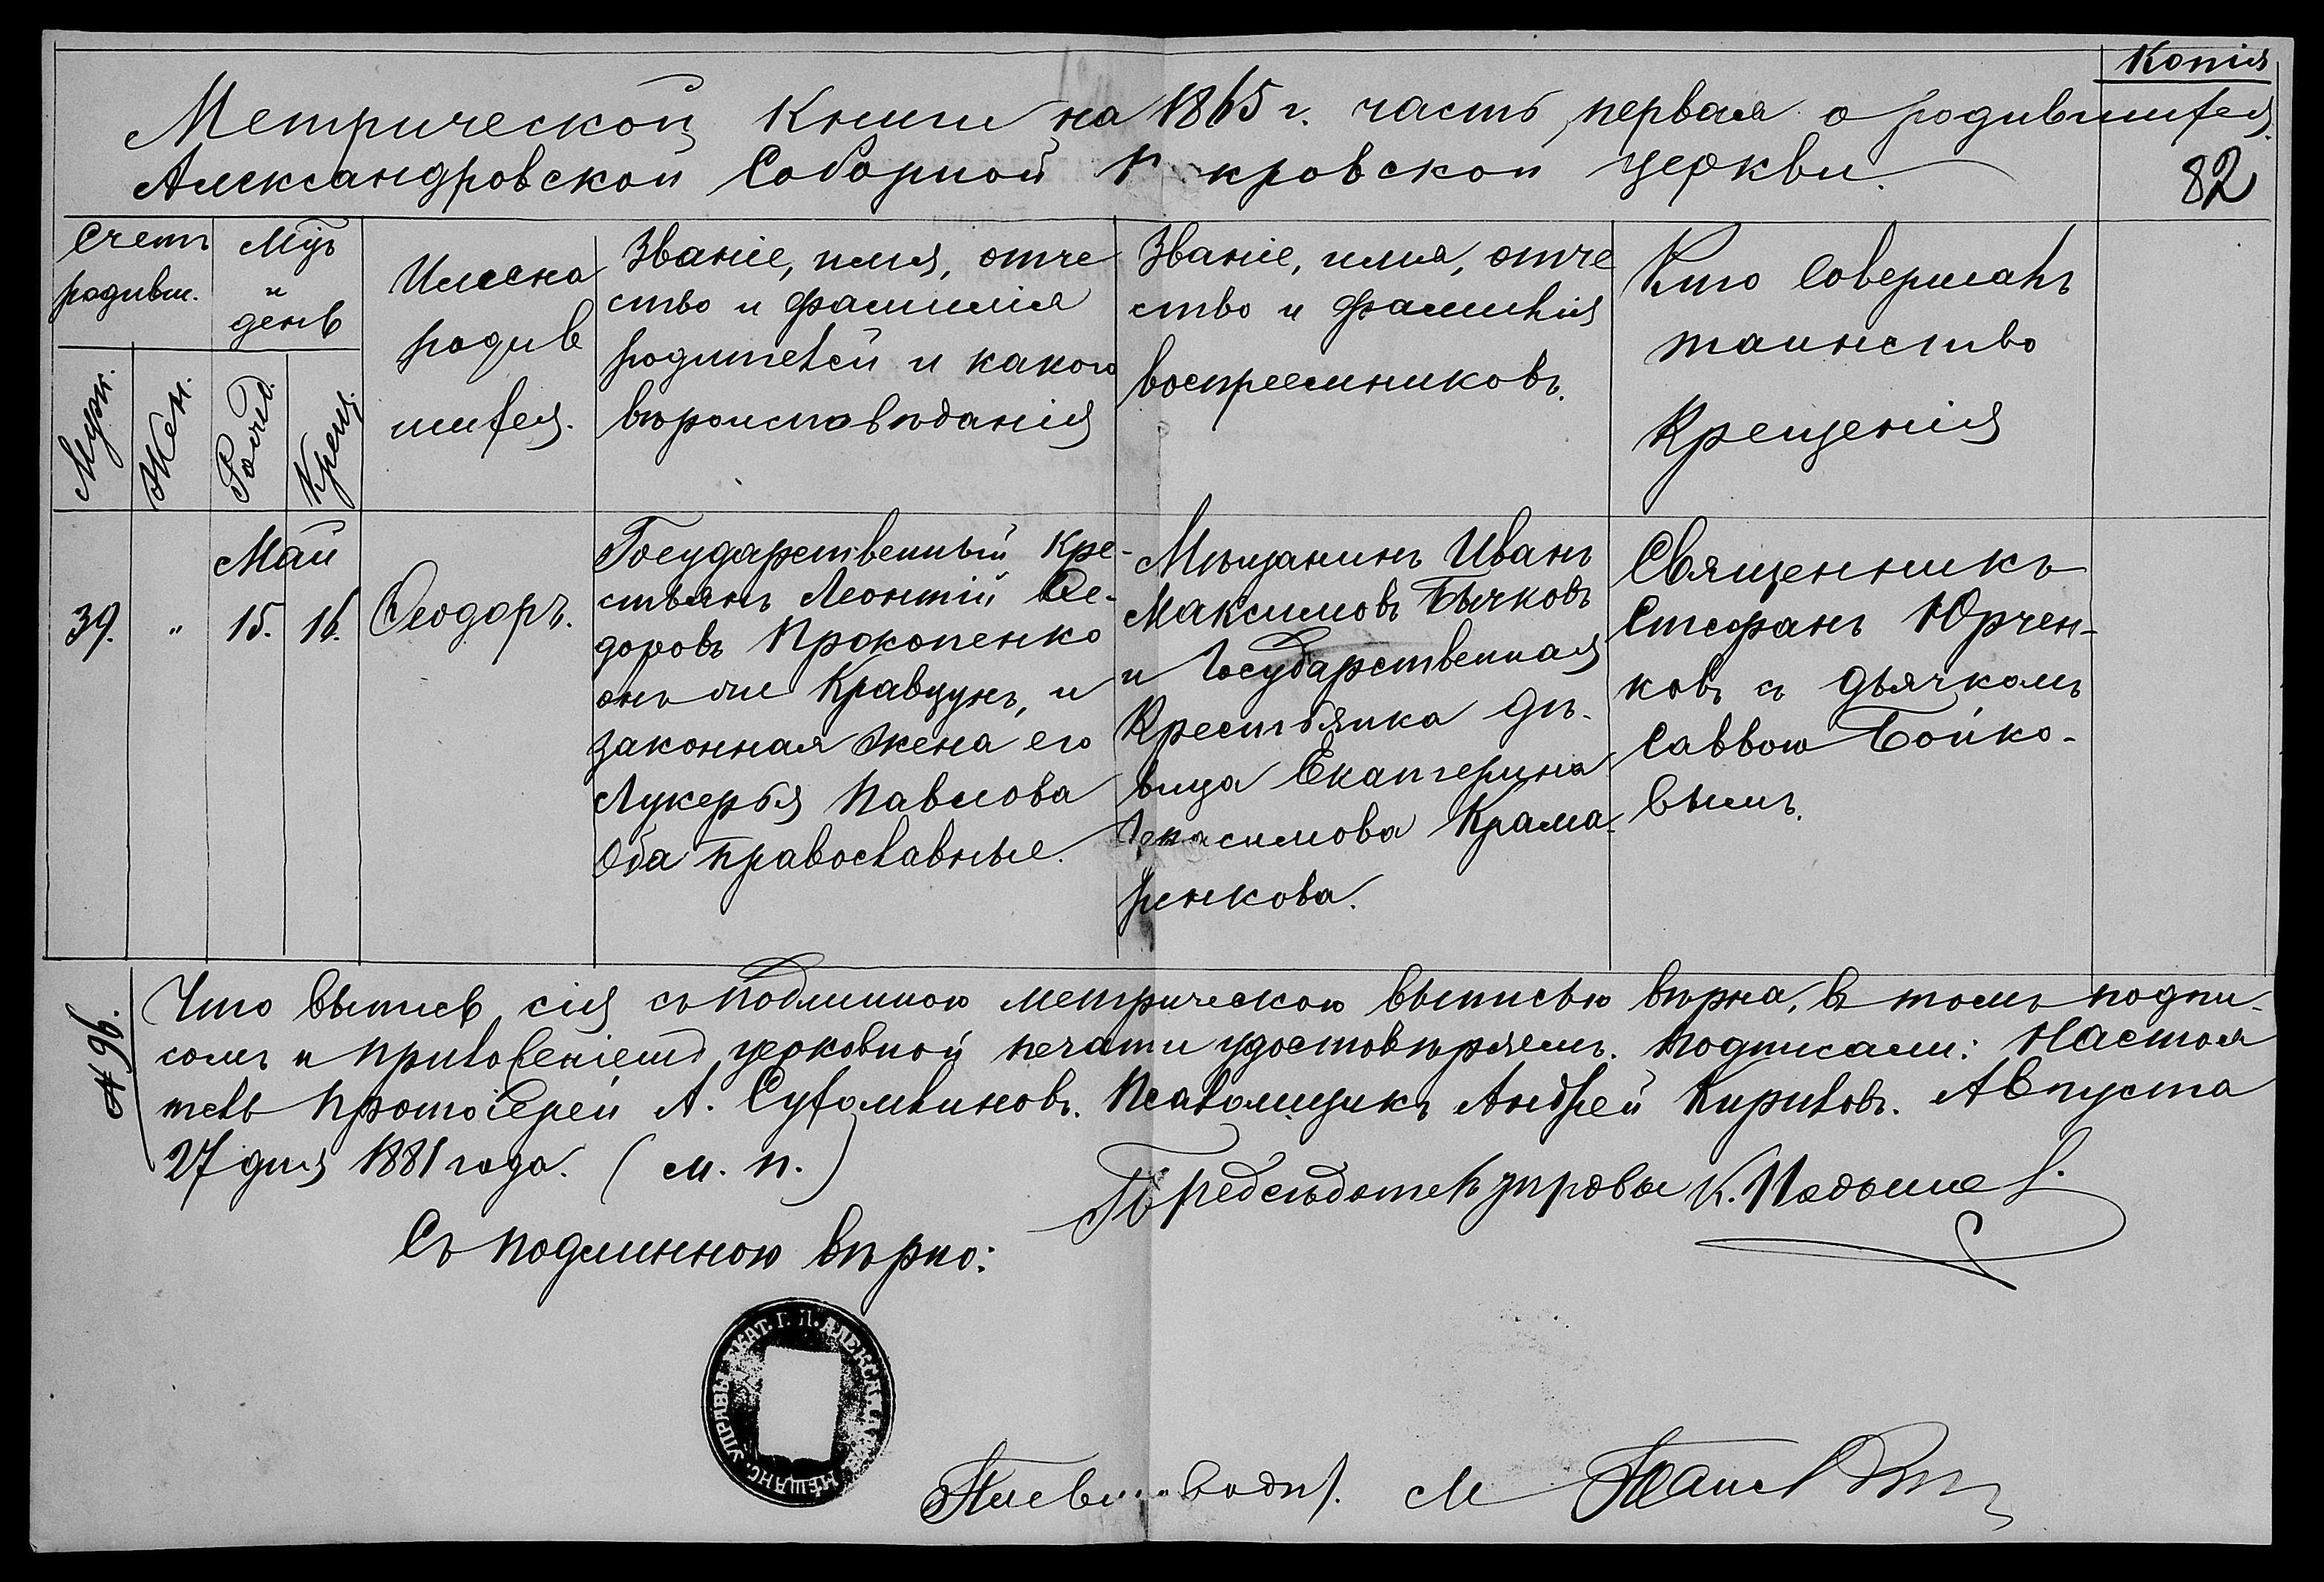 Копія
Метрической книги на 1865 г. часть первая о родившихся
Александровской Соборной П кровской церкви.
82
Счетъ родивш.
Муж.
Жен.
Мцъ и день
Рожд.
Крещ.
Имена
родив
шихся.
Званіе, имя, отче
ство и фамилія
родителей и какого
вѣроисповѣданія
Званіе, имя, отче
ство и фамилія
воспреемниковъ.
Кто совершалъ
таинство
Крещенія
Май
39. " 15. 16.
Ѳеодоръ.
Государственный кре-
стьянъ Леонтій Ѳе-
доровъ Прокопенко
онъ же Кравцунъ, и
законная жена его
Лукерья Павлова
Оба православные.
Мѣщанинъ Иванъ
Максимовъ Бычковъ
и Государственная
Крестьянка дѣ-
вица Екатерина
Герасимова Крама-
ренкова.
Священникъ
Стефанъ Юрчен-
ковъ съ дьячкомъ
Саввою Бойко-
вымъ.
№ 96.
Что выпись сія съ подлинною метрическою выписью вѣрна, въ томъ подпи-
сомъ и приложеніемъ церковной печати удостовѣряемъ. Подписали: Настоя
тель Протоіерей А. Сухомлиновъ. Псаломщикъ Андрей Кириловъ. Августа
27 дня 1881 года. (М. П.)
Предсѣдатель управы К.
Съ подлинною вѣрно:
МѢЩАНС. УПРАВЫ ЕКАТ. Г. АЛЕКСАН